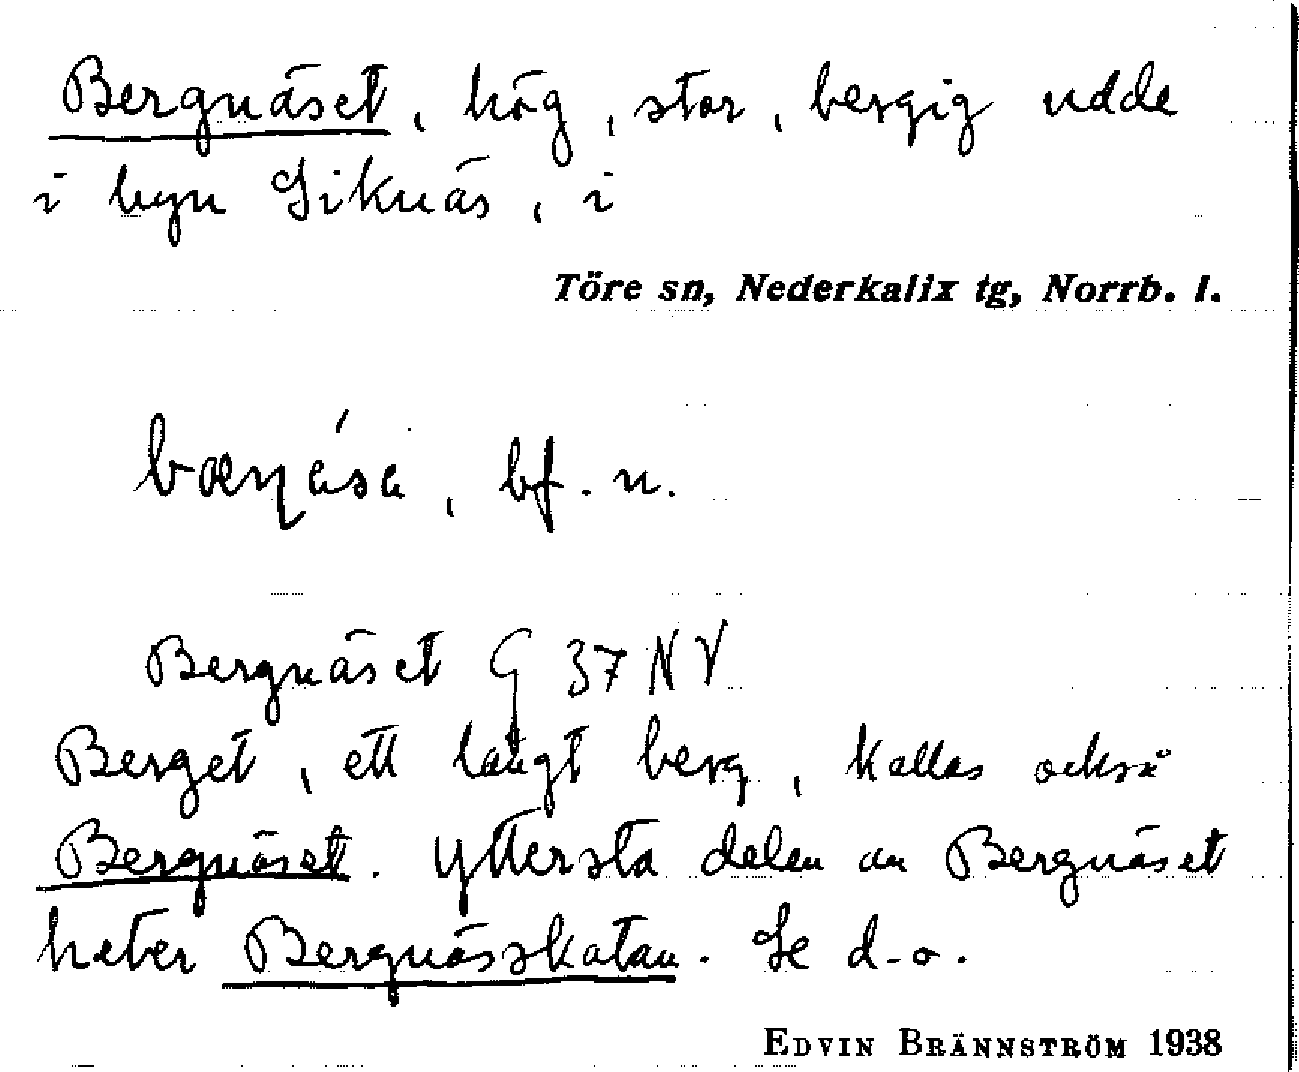 Bergnäset, hög, stor, bergig udde
i byn Siknäs, i
Töre sn, Nederkalix tg, Norrb. l.
bf. n.
Bergnäset G 37 NV
Berget, ett långt berg, kallas också
Bergnäset. Yttersta delen av Bergnäset
heter Bergnässkatan. Se d-o.
EDVIN BRÄNNSTRÖM 1938